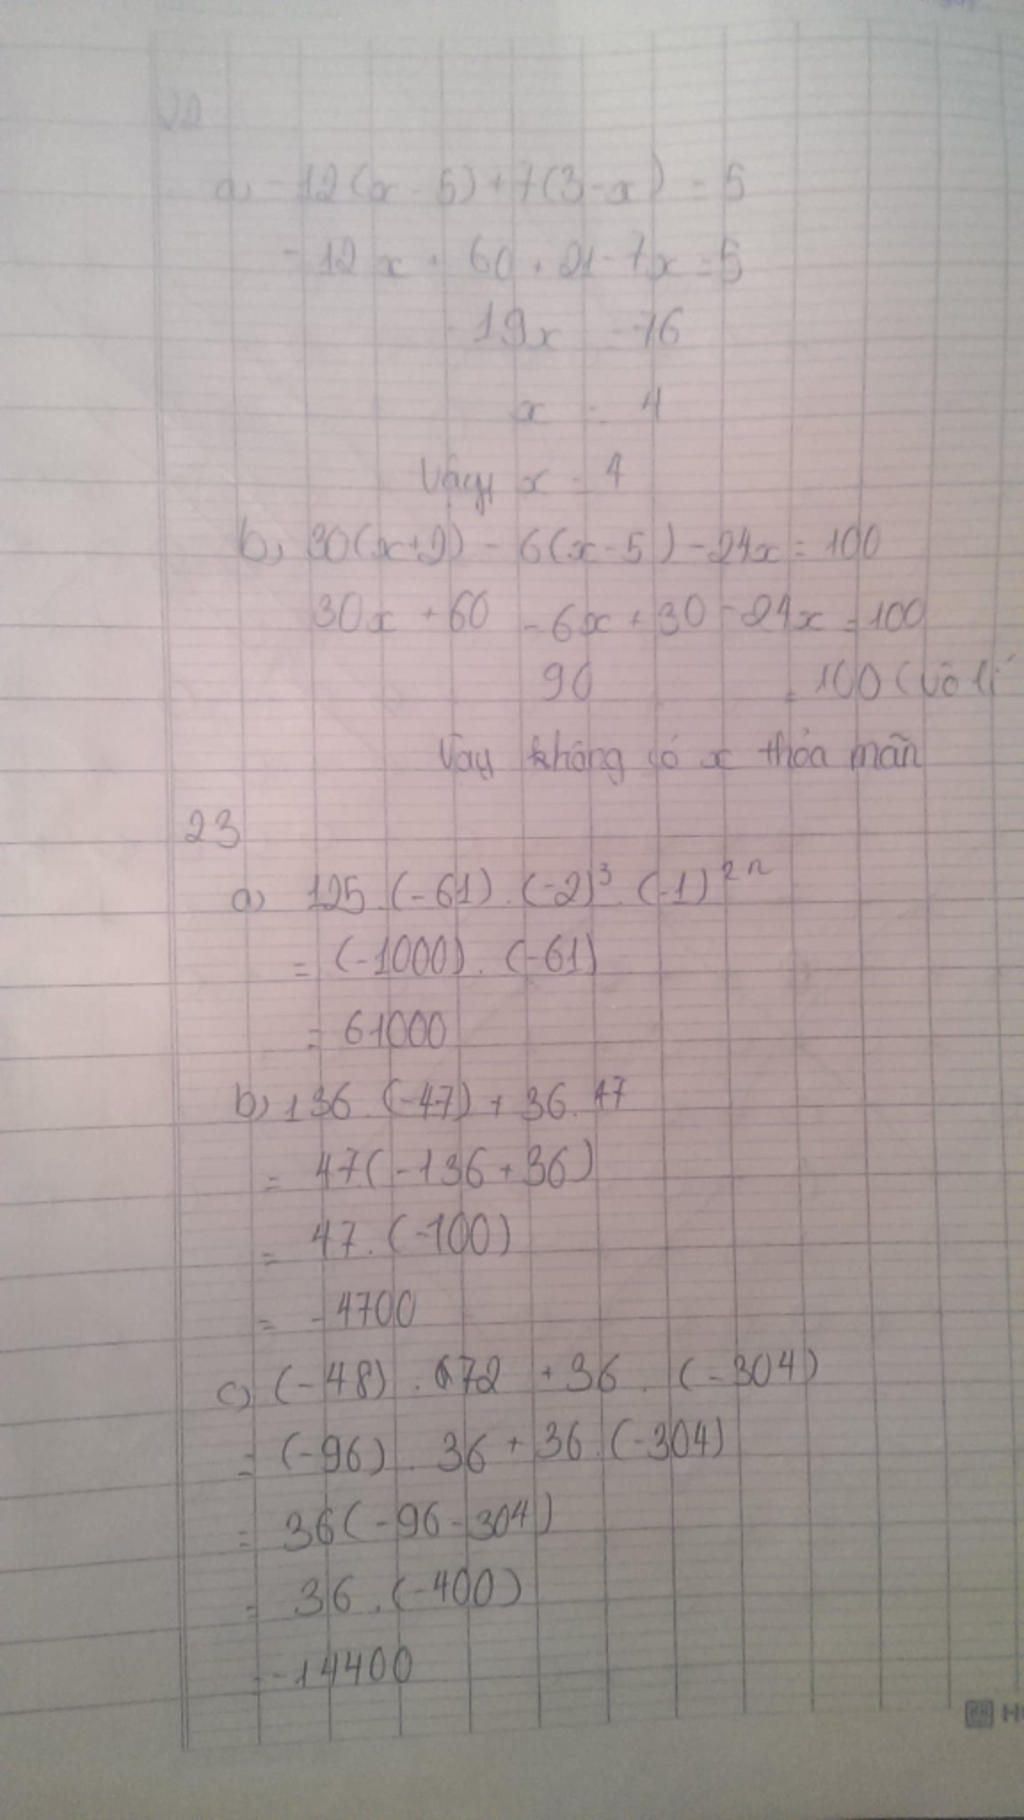 22
a) -12(x - 5) + 7(3 - x) = 5
-12x + 60 + 21 - 7x = 5
19x = 76
x = 4
Vậy x = 4
b) 30(x+2) - 6(x-5) - 24x = 100
30x + 60 - 6x + 30 - 24x = 100
90 = 100 (vô lí
Vậy không có x thỏa mãn
23
a) 125 . (-61) . (-2)³ . (-1)²ⁿ
= (-1000) . (-61)
= 61000
b) 136 . (-47) + 36 . 47
= 47(-136 + 36)
= 47 . (-100)
= -4700
c) (-48) . 72 + 36 . (-304)
= (-96) . 36 + 36 . (-304)
= 36(-96 - 304)
= 36 . (-400)
= -14400